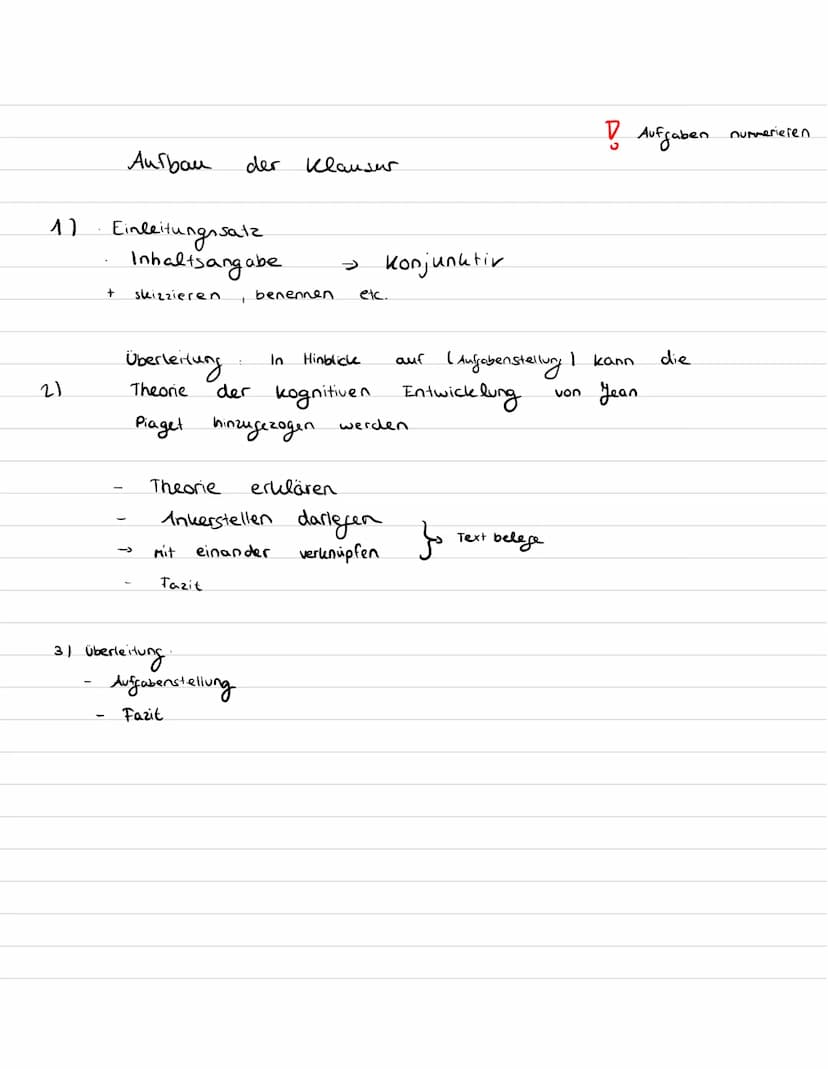 ! Aufgaben nummerieren
Aufbau der Klausur
1) · Einleitungssatz
· Inhaltsangabe → Konjunktiv
+ skizzieren, benennen etc.
Überleitung: In Hinblick auf (Aufgabenstellung) kann die
2) Theorie der kognitiven Entwicklung von Jean
Piaget hinzugezogen werden
- Theorie erklären
- Ankerstellen darlegen
→ mit einander verknüpfen } → Text belege
- Fazit
3) Überleitung:
- Aufgabenstellung
- Fazit